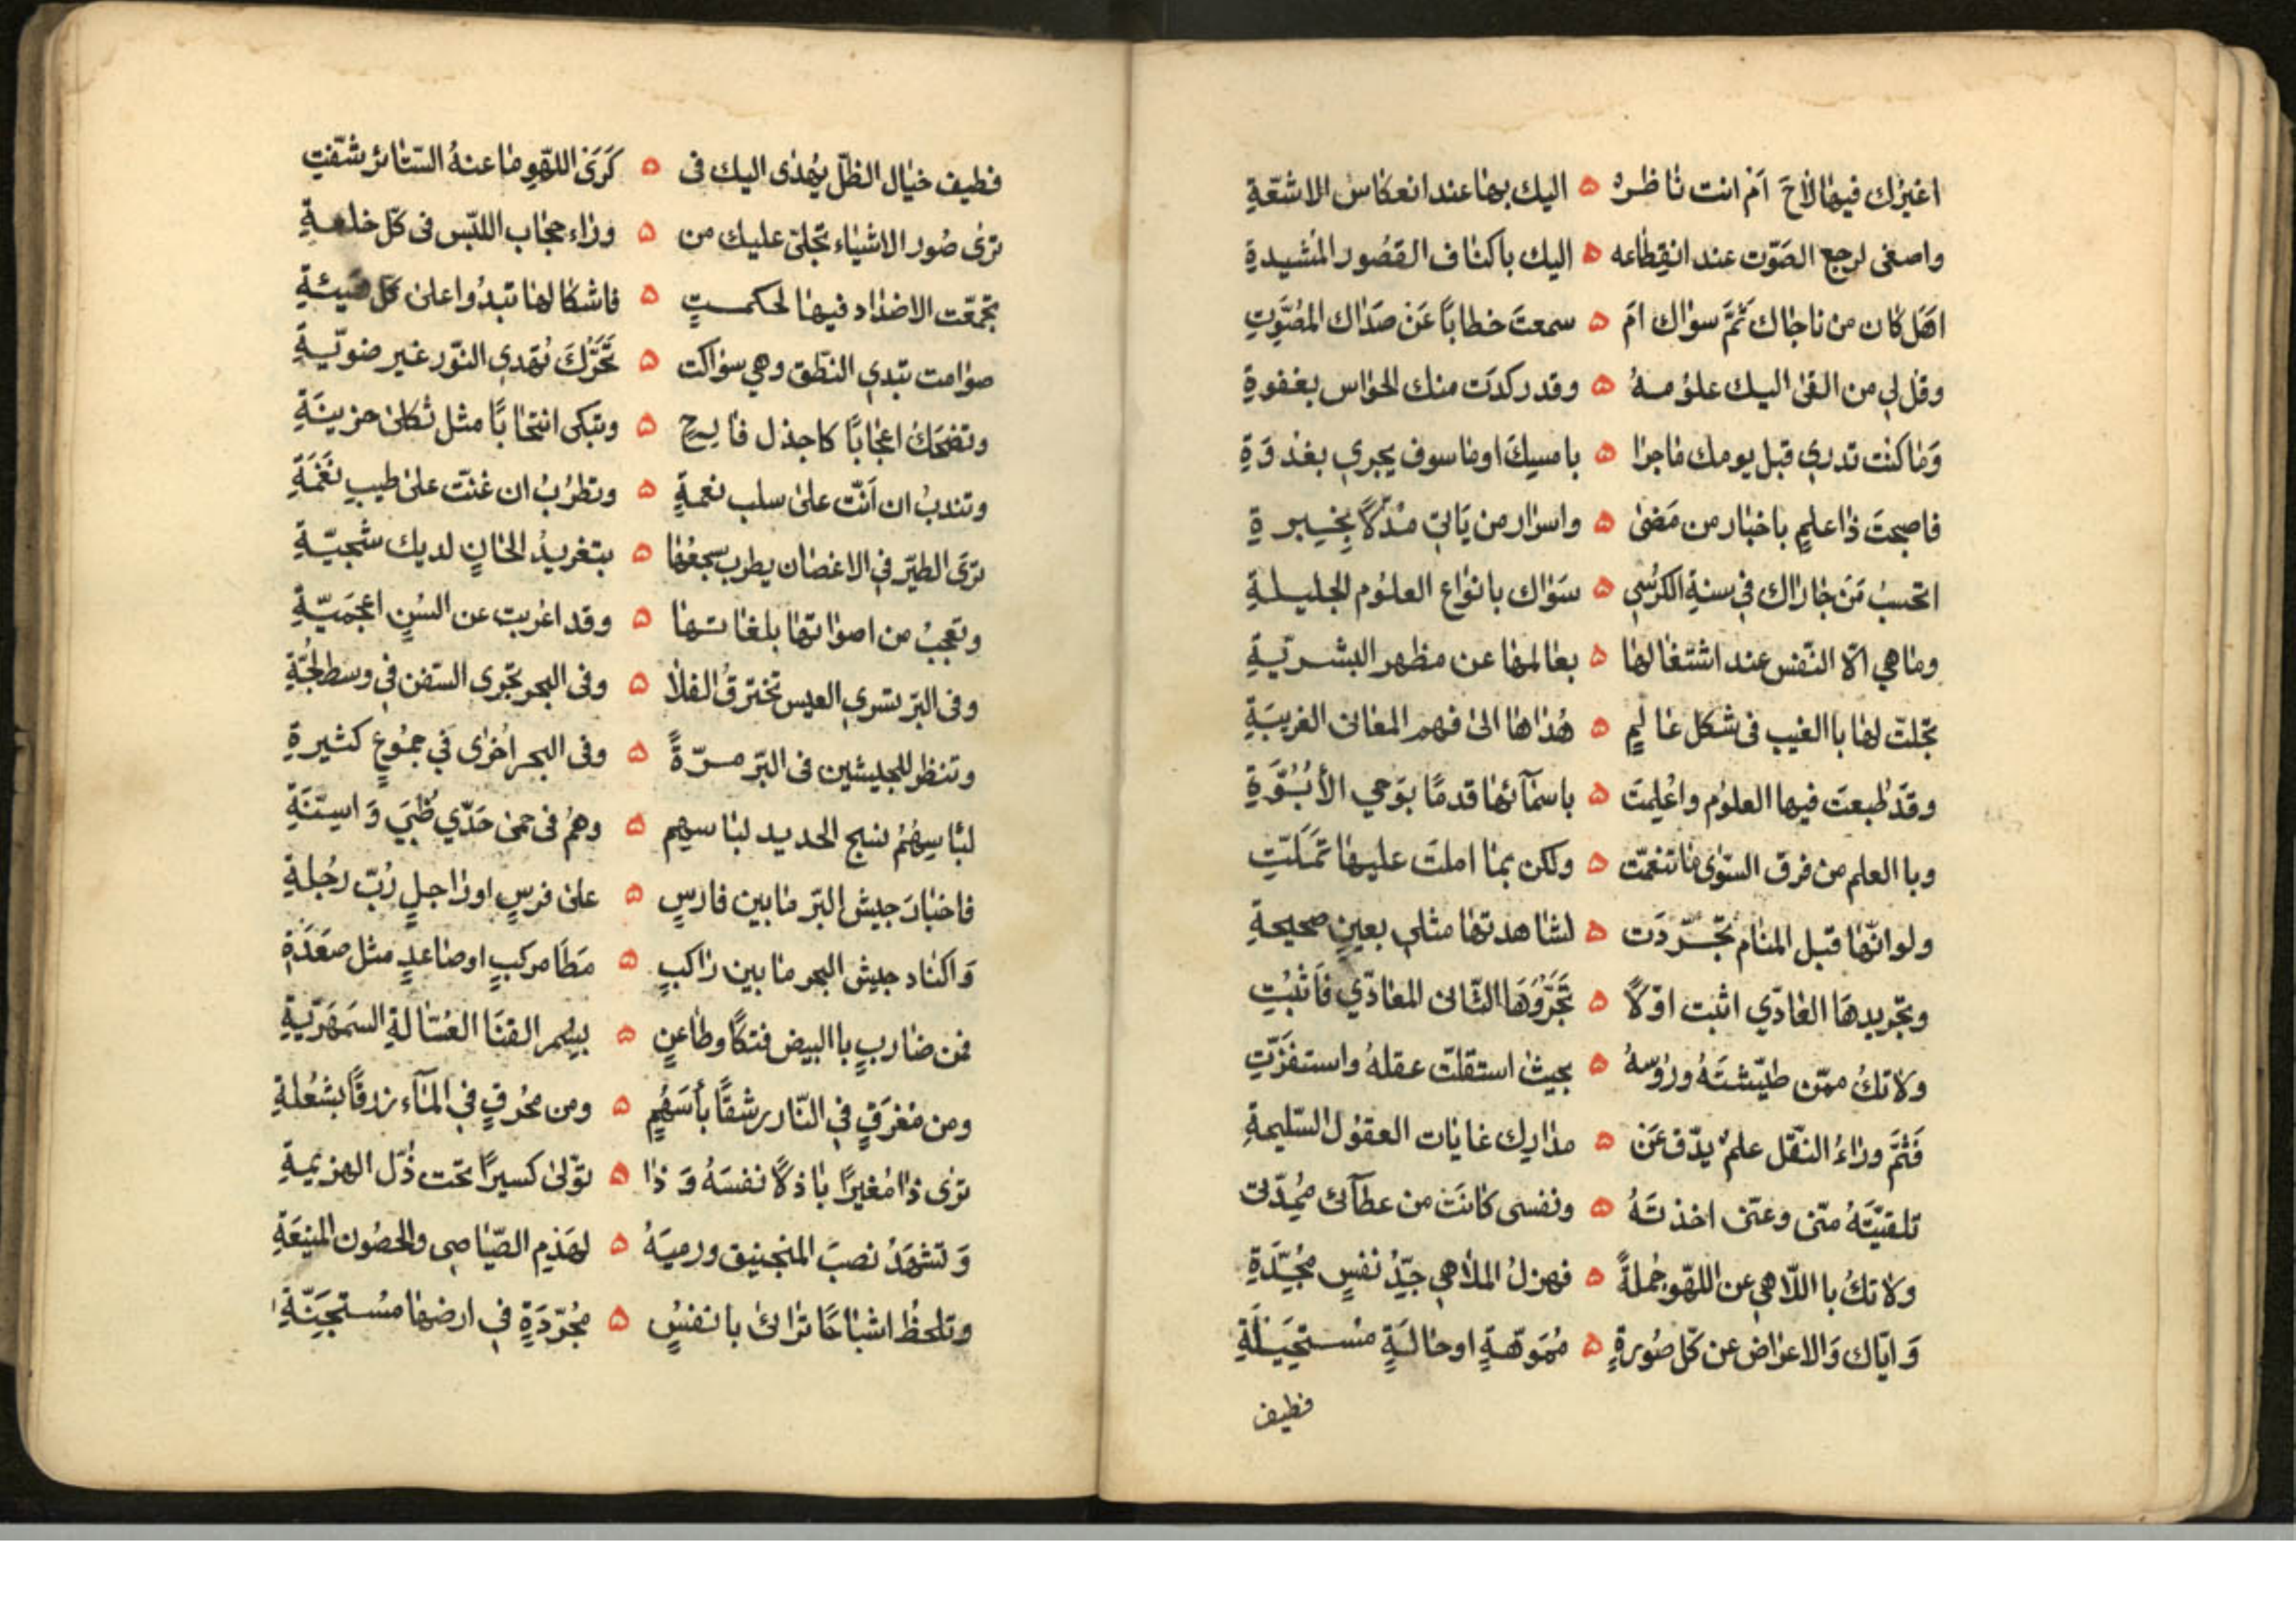 اغيرك فيها لاح اَم انت ناظره ه اليك بها عند انعكاس الاشعّةِ
واصغى لرجع الصّوت عند انقِطاعه ه اليك باكناف القصُور المشيدةِ
اهَل كان من ناجاك ثَمَّ سواك امَ ه سمعتَ خطابًا عَن صَدَاك المصَّوِتِ
وقل لي من القى اليك علوُمهُ ه وقد ركدَت منك الحوَاس بغفوةِ
وَما كنت تدرى قبل يومك ما جرا ه بامسِكَ او ما سوف يجري بغدْوَةِ
فاصبحتَ ذا علمٍ باخبار من مَضىٰ ه واسرَار من يَاتى مدّلاً بِخيبرةِ
اتحسبُ مَن جاراك في سنةِ الكرَىٰ ه سَوَاك بانوَاع العلوُم الجليلةِ
وما هي الّا النّفس عند اشتغالها ه بعالمها عن مظهر البشريّةِ
تجلّت لها باالغيب فى شكل عالمٍ ه هُداها الىٰ فهم المعانى الغريبَةِ
وقَد طبعتَ فيها العلوُم واعُلِمتَ ه باسمَآئها قدمًا بوَحي الأبُوَّةِ
وبا العلم من فرق السّوى ما تنعّمت ه ولكن بما املتَ عليها تَمَلّتِ
ولو انّها قبل المنام تجرّدَت ه لشاهدتها مثلي بعينٍ صحيحةِ
وتجريدهَا العادّي اثبت اوّلاً ه تَجَرُّدَهَا الثّانى المعادّي فَاَثبُتِ
ولا تكُ ممّن طيّشتَهُ دروُسهُ ه بحيث استقلّت عقلهُ واستفزّتِ
فَثَمَّ ورَاءَ النّقل علمٌ يدّق عَن ه مدَارِك غايات العقوُل السّليمةِ
تلقيّتَهُ منّى وعنّى اخذتَهُ ه ونفسى كانَت من عطآئى مُمِدّتى
ولا تكُ باللّاهي عن اللهّو جُملةً ه فهزلُ الملاهي جِدُّ نفسٍ مجُدّةِ
وَايّاك وَالاعرَاض عن كلّ صُورةٍ ه مُمَوّهةٍ او حالةٍ مستحيَلةِ
فطيف
فطيف خيَال الظلّ يُهدى اليك فى ه كَرَى اللهّوِ ما عنهُ السّتائر شقّتِ
ترىٰ صُور الاشيَاء تجلىّ عليك من ه ورَاء حجَاب اللبّس فى كلّ خلعةِ
تجمعّت الاضدَاد فيها لحكمتٍ ه فاشكالها تبدُوا على كلّ هَيئةِ
صوَامت تبدي النّطق وهي سوَاكت ه تَحَرُّكَ تُهدي النّور غير ضوّيةِ
وتضحكُ اعجابًا كاجذل فارحٍ ه وتبكى انتحابًا مثل ثكلى حزينَةِ
وتندبُ ان اَنّت علىٰ سلب نعمةٍ ه وتطرُبُ ان غنّت علىٰ طيبِ نَغْمَةِ
ترَى الطيّر فى الاغصَان يطرب سجعُها ه بتغريدُ الحانٍ لديك شجيّةِ
وتعجبُ من اصوَاتها بلغاتها ه وقد اعرَبت عن السُنٍ اعجمَيّةِ
وفى البّر تسري العيس تخترقُ الفلا ه وفى البحر تجرى السّفن فى وسط لجُّةِ
وتنظر للجيشين فى البّر مرّةً ه وفى البحر اُخرَى فى جموُعٍ كثيرةِ
لبَاسهُمُ نسج الحديد لباسهم ه وهُم فى حمىٰ حَدّي ظُبَي وَاسِنّةِ
فاخبَاد جيش البّر ما بين فارسٍ ه علىٰ فرسٍ او رَاجلٍ رُبّ رجُلةِ
وَاكناد جيش البحر ما بين رَاكبٍ ه مَطَا مركبٍ او صَاعدٍ مثل صعَدَةِ
فمن ضاربٍ باالبيض فتكًا وطَاعنٍ ه بسُمر القنَا العسّالةِ السَمهَرّيةِ
ومن مغرَقٍ في النّار رشقًا بأسَهُمٍ ه ومن محُرقٍ في المآء زرقًا بشُعلةِ
ترى ذا مُغيرًا باذلاً نفسَهُ وَذا ه يوّلى كسيرًا تحت ذُلّ الهزيمةِ
وَتشهَدُ نصبَ المنجنيق ورميَهُ ه لهَدْمِ الصّيَاصى والحصُون المنيعَةِ
وتلحظُ اشبَاحًا ترَاىٰ بانفسٍ ه مُجرّدَةٍ في ارضها مستجِنّةِ